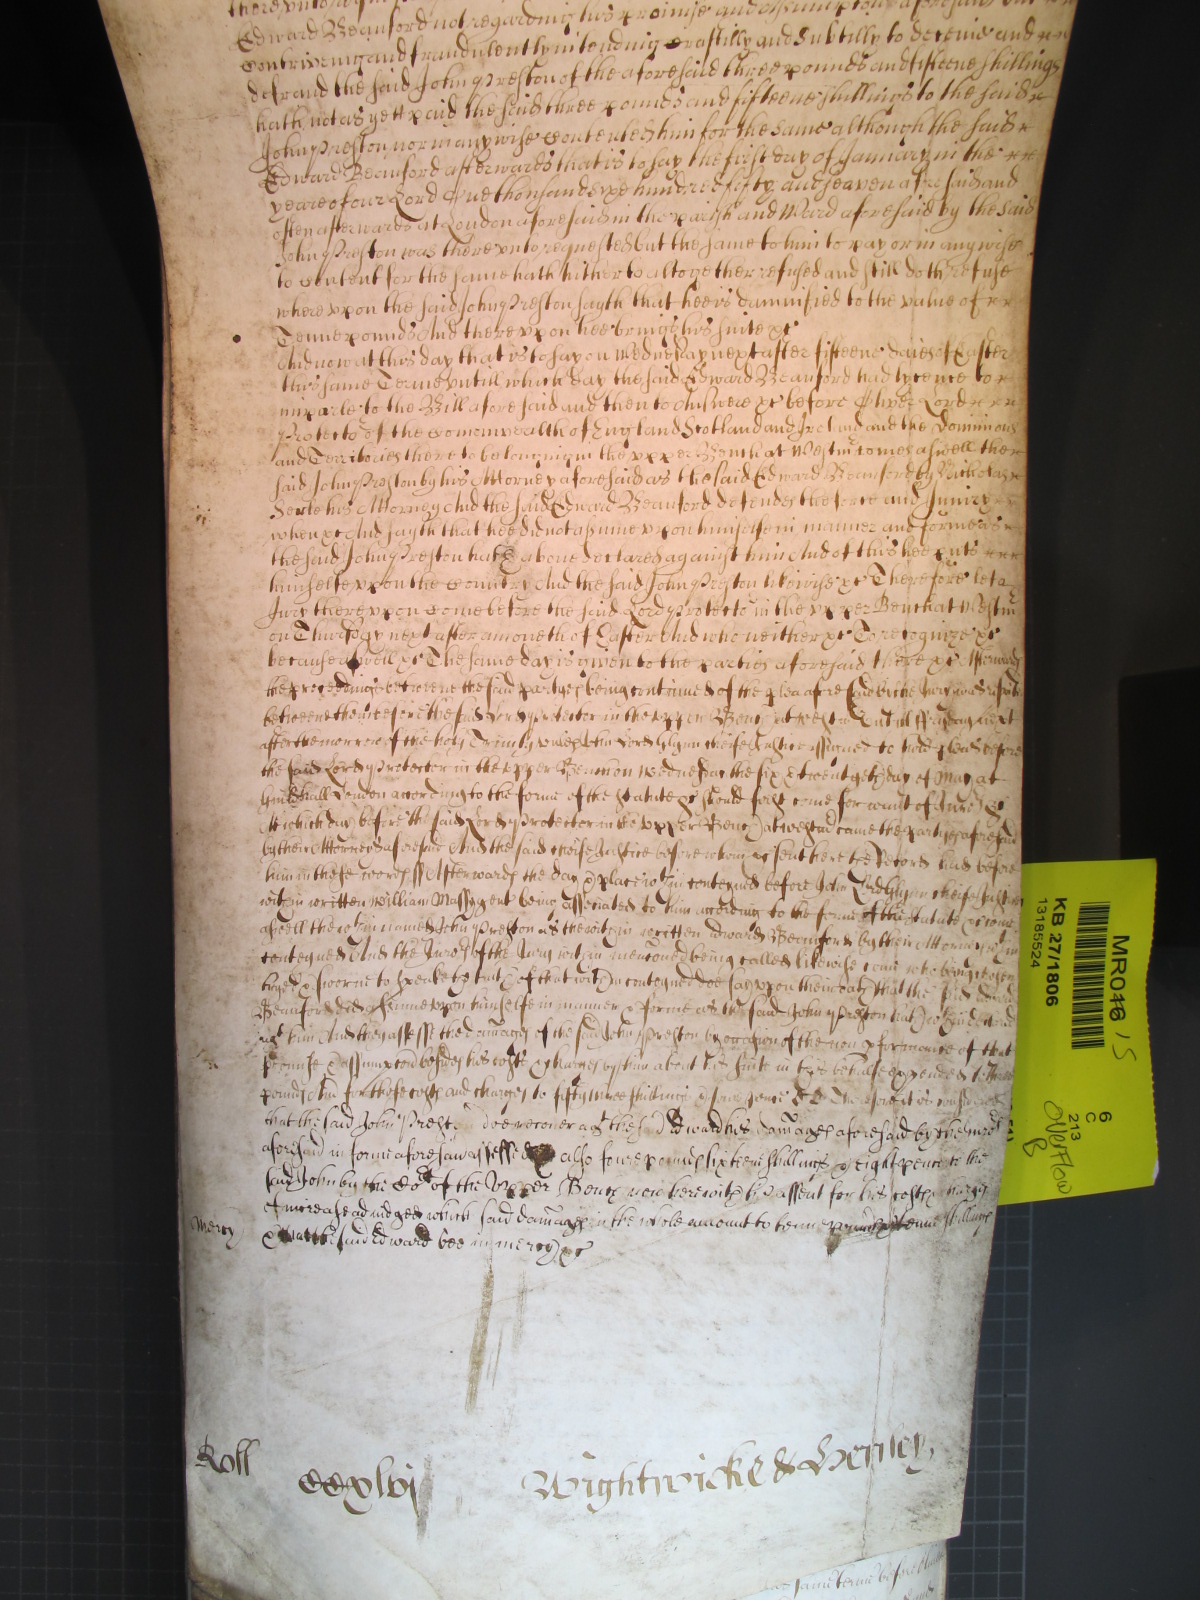 Edward Beauford not regarding his promise and assumptions aforesaid but
contriveing and fraudulently intending craftily and subtilly to deceive and
defraud the said John Preston of the aforesaid three pounds and fifteene shillings
hath not as yett paid the said three pounds and fifteene shillings to the said
John Preston nor in anywise contented him for the same although the said
Edward Beauford afterwards that is to say the first day of January in the
yeare of our Lord One thousand sixe hundred fifty and seaven aforesaid and
often afterwards at London aforesaid in the parish and Ward aforesaid by the said
John Preston was thereunto requested but the same to him to pay or in anywise
to content for the same hath hitherto altogether refused and still doth refuse
whereupon the said John Preston sayth that hee is damnified to the value of
Tenne pounds And thereupon hee brings his suite &c
And now at this day that is to say on Wednesday next after fifteene daies of Easter
this same Terme untill which day the said Edward Beauford had lycence to
imparle to the Bill aforesaid and then to Answere &c before Oliver Lord
Protector of the Comonwealth of England Scotland and Ireland and the Dominions
and Territories thereto belonging in the upper Bench at Westm comes aswell the
said John Preston by his Attorney aforesaid as the said Edward Beauford by Nicholas
Serle his Attorney And the said Edward Beauford defendes the force and Iniury
when &c And sayth that hee did not assume upon himselfe in manner and forme as
the said John Preston hath above declared against him And of this hee puts
himselfe upon the Country And the said John Preston likewise &c Therefore let a
Jury thereupon come before the said Lord Protector in the upper Bench at Westm
on Thursday next after a moneth of Easter And who neither &c To recognize &c
because aswell &c The same day is given to the parties aforesaid there &c Afterwards
the proceedings betweene the said partyes being continued of the plea aforesaid by the Jury was respited
betweene them before the said Lord Protector in the upper Bench at Westm Untill Fryday next
after the morrow of the holy Trinity unless John Lord Glynn cheife Justice assigned to hold pleas before
the said Lord Protector in the upper Bench on Wednesday the six & twentyeth day of May at
Guildhall London according to the forme of the statute &c should first come for want of Jurors &c
At which day before the said Lord Protector in the upper Bench at Westm came the partyes aforesaid
by their Attorneys aforesaid And the said cheife Justice before whom &c sent here the Record had before
him in these words ss Afterwards the day & place within conteyned before John Lord Glynn cheife Justice
within written William Massy gent being associated to him according to the forme of the statute &c came
aswell the within named John Preston as the within written Edward Beauford by their Attorneys within
conteyned And the Jurors of the Jury within mencioned being called likewise came who being chosen
tryed & sworne to speake the truth of that within conteyned doe say upon their oath that the said Edward
Beauford did assume upon himselfe in manner & forme as the said John Preston hath within declared
agt him And they assesse the damages of the said John Preston by occasion of the non performance of that
promise & assumpcon besides his costs & charges by him about his suite in this behalfe expended to three
pounds And for those costs and charges to fifty three shillings & foure pence Therefore it is considered
that the said John Preston doe recover agt the said Edward his damages aforesaid by the Jurors
aforesaid in forme aforesaid assessed also foure pounds sixteene shillings & eight pence to the
said John by the Cot of the Upper Bench now here with his assent for his costs & charges
of increase adiudged which said damages in the whole amount to tenne pounds tenne shillings
& that the said Edward bee in mercy &c
Mercy
Roll
CCxlvj
Wightwicke & Herney
KB 27/1806
13185524
6
C
213
overflow
B